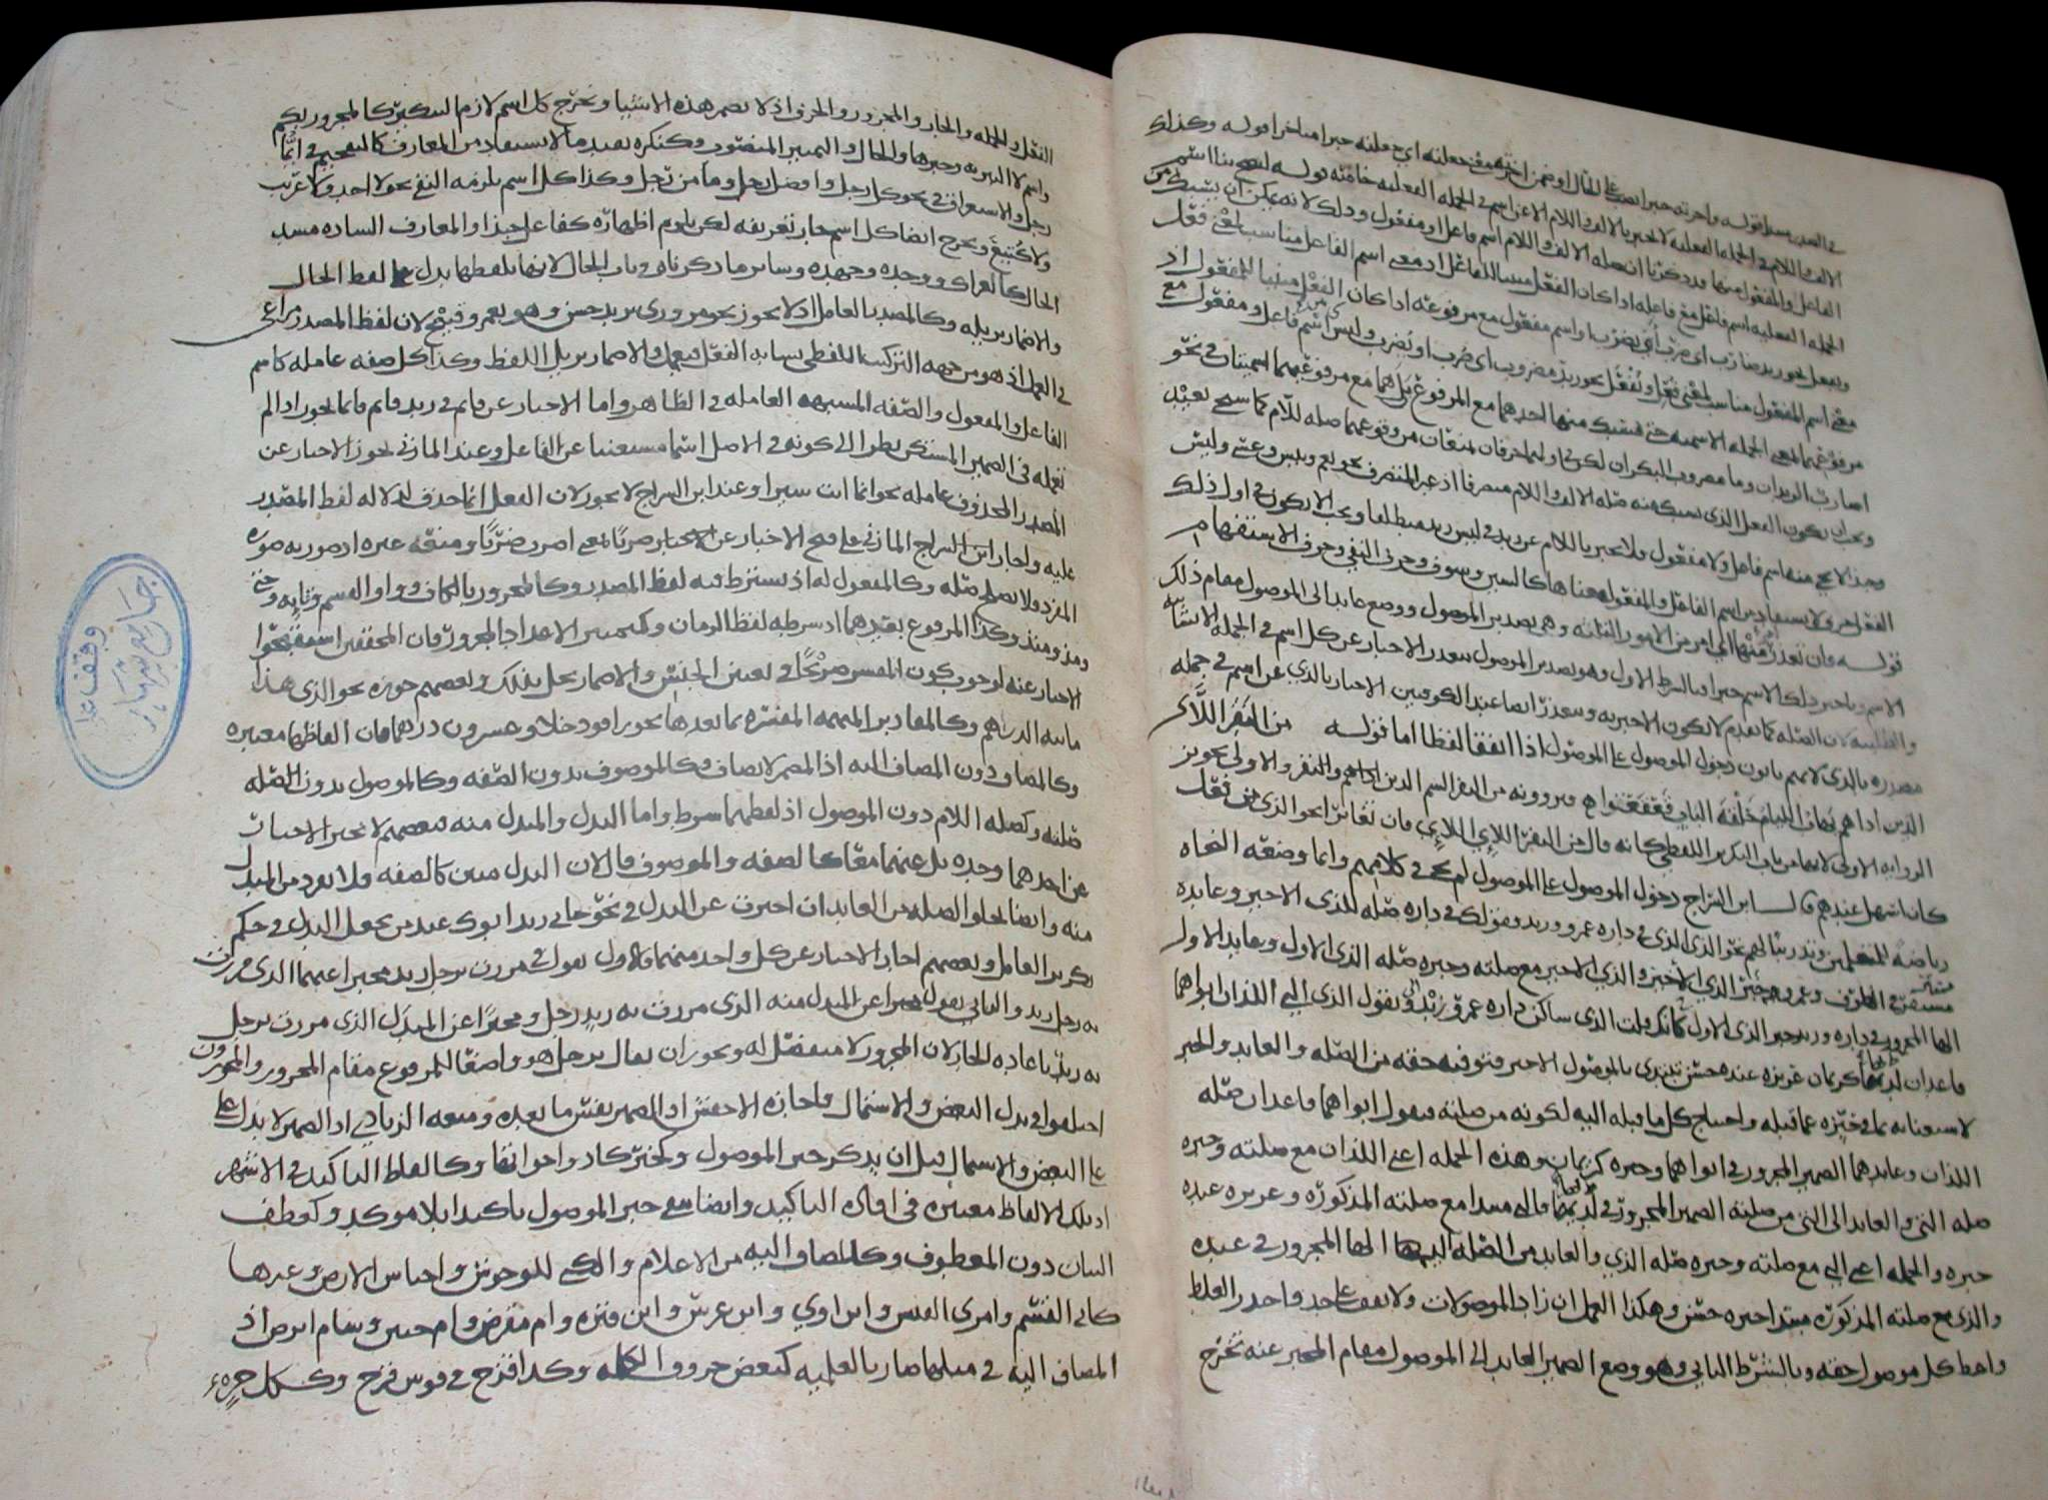 في الصدر مبتدا قوله واخرته خبرا نصب على الحال او ضمن اخرته معنى جعلته اي جعلته خبرا متاخرا قوله وكذلك
الالف واللام في الجملة الفعلية لا تخبر بالالف واللام الا عن اسم في الجملة الفعلية خاصة قوله ليصح بنا اسم
الفاعل والمفعول منها قد ذكرنا ان صلة الالف واللام اسم فاعل او مفعول وذلك لانه يمكن ان ينسبك من
الجملة الفعلية اسم فاعل مع فاعله اذا كان الفعل مبنيا للفاعل اذ معنى اسم الفاعل مناسب لمعنى فعل
ويفعل نحو زيد ضارب اي ضرب او يضرب او اسم مفعول مع مرفوعه اذا كان الفعل مبنيا للمفعول اذ
معنى اسم المفعول مناسب لمعنى فعل ويفعل نحو زيد مضروب اي ضرب او يضرب وليس اسم فاعل ومفعول مع
مرفوعهما بمعنى الجملة الاسمية حتى ينسبك منها احدهما مع المرفوع بلى هما مع مرفوعيهما اسميتان في نحو
اضارب الزيدان وما مضروب البكران لكن في اولهما حرفان يمنعان من وقوعهما صلة للام كما سيجي بعيد
ويجب ان يكون الفعل الذي يسبك منه صلة الالف واللام متصرفا اذ غير المتصرف نحو نعم وبئس وعسى وليس
وحبذا لا يجي منه اسم فاعل ولا مفعول فلا تخبر باللام عن زيد في ليس زيد منطلقا ويجب الا يكون في اول ذلك
الفعل حرف لا يستفاد من اسم الفاعل والمفعول معناها كالسين وسوف وحرف النفي وحرف الاستفهام
قوله فان تعذر منها اي امر من الامور الثلثة وهي تصدير الموصول ووضع عايد الى الموصول مقام ذلك
الاسم وتاخير ذلك الاسم خبرا فبالشرط الاول وهو تصدير الموصول يتعذر الاخبار عن كل اسم في الجملة الانشائية
والطلبية لان الصلة كما تقدم لا تكون الا خبرية ويتعذر ايضا عند الكوفيين الاخبار بالذي عن اسم في جملة
مصدرة بالذي لانهم يابون دخول الموصول على الموصول اذا اتفقا لفظا اما قوله من النفر اللائي
الذين اذا هم يهاب اللئام حلقة الباب قعقعوا فيروونه من النفر الشم الذين اذا هم والنفر والاولى تجويز
الرواية الاولى لانها من باب التكرير اللفظي كانه قال من النفر اللائي اللائي فان تغايرا نحو الذي من فعل
كان اسهل عندهم قال ابن السراج دخول الموصول على الموصول لم يجئ في كلامهم وانما وضعه النحاة
رياضة للمتعلمين وتدريبا لهم نحو الذي الذي في داره عمرو وزيد فقولك في داره صلة للذي الاخير وعايده
مستتر في الظرف وعمرو خبر الذي الاخير والذي الاخير مع صلته وخبره صلة الذي الاول وعايد الاول
الها المجرور في داره وزيد خبر الذي الاول كانك قلت الذي ساكن داره عمرو زيد وتقول الذي التي اللذان ابواهما
قاعدان لديها كريمان عزيزة عنده حسن تبتدي بالموصول الاخير فتوفيه حقه من الصلة والعايد والخبر
لاستغنائه بما في حيزه عما قبله واحتياج كل ما قبله اليه لكونه من صلته فنقول ابواهما قاعدان صلة
اللذان وعايدهما الضمير المجرور في ابواهما وخبره كريمان وهذه الجملة اعني اللذان مع صلته وخبره
صلة التي والعايد الى التي من صلته الضمير المجرور في لديها فالتي مبتدا مع صلته المذكورة وعزيزة عنده
خبره والجملة اعني التي مع صلته وخبره صلة الذي والعايد من الصلة اليه الها المجرور في عنده
والذي مع صلته المذكورة مبتدا خبره حسن وهكذا العمل ان زاد الموصولات ولا تقف على حد واحذر الغلط
واعط كل موصول حقه وبالشرط الثاني وهو وضع الضمير العايد الى الموصول مقام المخبر عنه تخرج
الفعل والجملة والجار والمجرور والحرف اذ لا تضمر هذه الاشيا وتخرج كل اسم لازم التنكير كالمجرور بكم
واسم لا التبرية وخبرها والحال والتمييز المنصوب وكنكرة تفيد ما لا يستفاد من المعارف كالتعجب في انما
رجل والاستغراق في نحو كل رجل وافضل رجل وما من رجل وكذا كل اسم يلزمه النفي نحو لا احد ولا عريب
ولا كتيع وتخرج ايضا كل اسم جاز تعريفه لكن يلزم اظهاره كفاعل حبذا والمعارف السادة مسد
الحال كالعراك ووحده وجهده وساير ما ذكرنا في باب الحال لانها بلفظها تدل على لفظ الحال
والاضمار يزيله وكالمصدر العامل اذ لا يجوز نحو مروري بزيد حسن وهو بعمرو قبيح لان لفظ المصدر مراعى
في العمل اذ هو من جهة التركيب اللفظي يشابه الفعل فيعمل والاضمار يزيل اللفظ وكذا كل صفة عاملة كاسم
الفاعل والمفعول والصفة المشبهة العاملة في الظاهر واما الاخبار عن قايم في زيد قايم فانما يجوز اذا لم
تعمله في الضمير المستكن نظرا الى كونه في الاصل اسما مستغنيا عن الفاعل وعند المازني يجوز الاخبار عن
المصدر المحذوف عامله نحو انما انت سيرا وعند ابن السراج لا يجوز لان الفعل انما حذف لدلالة لفظ المصدر
عليه واجاز ابن السراج المازني على قبح الاخبار عن ضربا بمعنى اضرب ضربا ومنعه غيره اذ صورته صورة
المفرد ولا يصلح صلة وكالمفعول له اذ يشترط فيه لفظ المصدر وكالمجرور بالكاف وواو القسم وتايه وحتى
ومذ ومنذ وكذا المرفوع بعدهما اذ شرطه لفظ الزمان وكتمييز الاعداد المجرور فان المحققين استقبحوا
الاخبار عنه لوجوب كون المفسر صريحا في تعيين الجنس والاضمار يخل بذلك وبعضهم جوزه نحو الذي هذا
مايه الدراهم وكالمقادير المبهمة المفسرة بما بعدها نحو راقود خلا وعشرون درهما فان الفاظها معتبرة
وكالمضاف دون المضاف اليه اذ المضمر لا يضاف وكالموصوف بدون الصفة وكالموصول بدون الصلة
صلته وكصلة اللام دون الموصول اذ لفظهما شرط واما البدل والمبدل منه فبعضهم لا يجيز الاخبار
عن احدهما وحده بل عنهما معا كالصفة والموصوف قال لان البدل مبين كالصفة فلا يفرد من المبدل
منه وايضا تخلو الصلة من العايد ان اخبرت عن البدل في نحو جاني زيد ابوك عند من يجعل البدل في حكم
تكرير العامل وبعضهم اجاز الاخبار عن كل واحد منهما فالاول تقول في مررت برجل زيد مخبرا عنهما الذي مررت
به رجل زيد والثاني تقول مخبرا عن المبدل منه الذي مررت به زيد رجل ومخبرا عن البدل الذي مررت برجل
به زيد باعادة الجار لان المجرور لا منفصل له ويجوز ان يقال برجل هو واضعا للمرفوع مقام المجرور والمجوزون
اختلفوا في بدل البعض والاشتمال فاجازه الاخفش اذ الضمير يفسر ما بعده ومنعه الزيادي اذ الضمير لا يدل على
على البعض والاشتمال قبل ان يذكر خبر الموصول وكخبر كاد واخواتها وكالفاظ التاكيد في الاشهر
اذ تلك الالفاظ معتبرة في افادة التاكيد وايضا يبقى خبر الموصول تاكيدا بلا موكد وكعطف
البيان دون المعطوف وكالمضاف اليه من الاعلام والكنى للوحوش واجناس الارض وغيرها
كابي القسم وامرى القيس وابن اوى وابن عرس وابن قترة وام مقرض وام حبين وسام ابرص اذ
المضاف اليه في مثلها صار بالعلمية كبعض حروف الكلمة وكذا قزح في قوس قزح وككل جزء
وقف